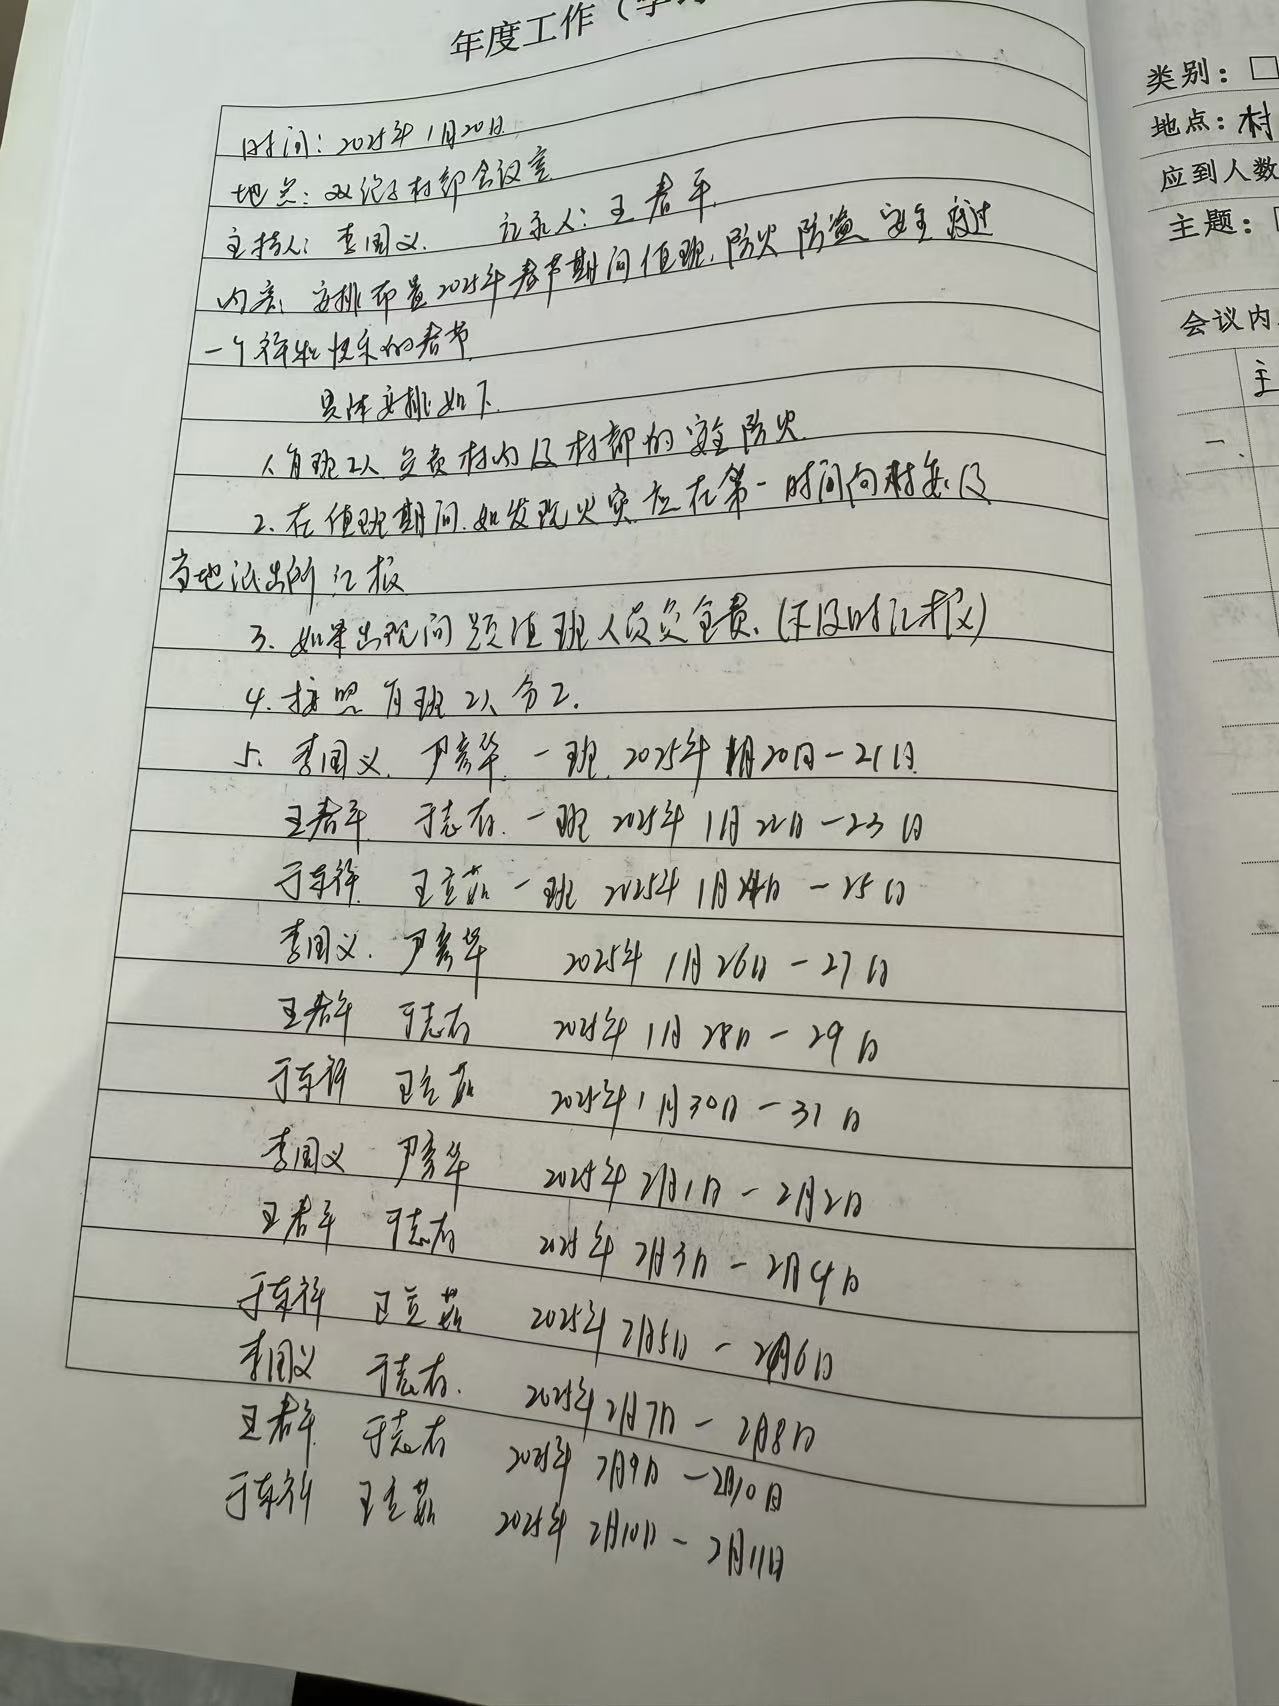 年度工作（学习
时间：2025年1月20日
地点：双泡子村部会议室
主持人：李国义 记录人：王春平
内容：安排布置2025年春节期间值班、防火防盗安全度过
一个祥和快乐的春节
具体安排如下
1、每班2人负责村内及村部的安全防火
2、在值班期间如发现火灾应在第一时间向村委及
当地派出所汇报
3、如果出现问题值班人员负全责（未及时汇报）
4、按照每班2人分工.
5、李国义、尹彦华 一班 2025年1月20日-21日
王春平 于志有 一班 2025年1月22日-23日
于东祥 王立茹 一班 2025年1月24日-25日
李国义、尹彦华 2025年1月26日-27日
王春平 于志有 2025年1月28日-29日
于东祥 王立茹 2025年1月30日-31日
李国义 尹彦华 2025年2月1日-2月2日
王春平 于志有 2025年2月3日-2月4日
于东祥 王立茹 2025年2月5日-2月6日
李国义 于志有 2025年2月7日-2月8日
王春平 于志有 2025年2月9日-2月10日
于东祥 王立茹 2025年2月10日-2月11日
类别：□
地点：村
应到人数
主题：
会议内
主
一、